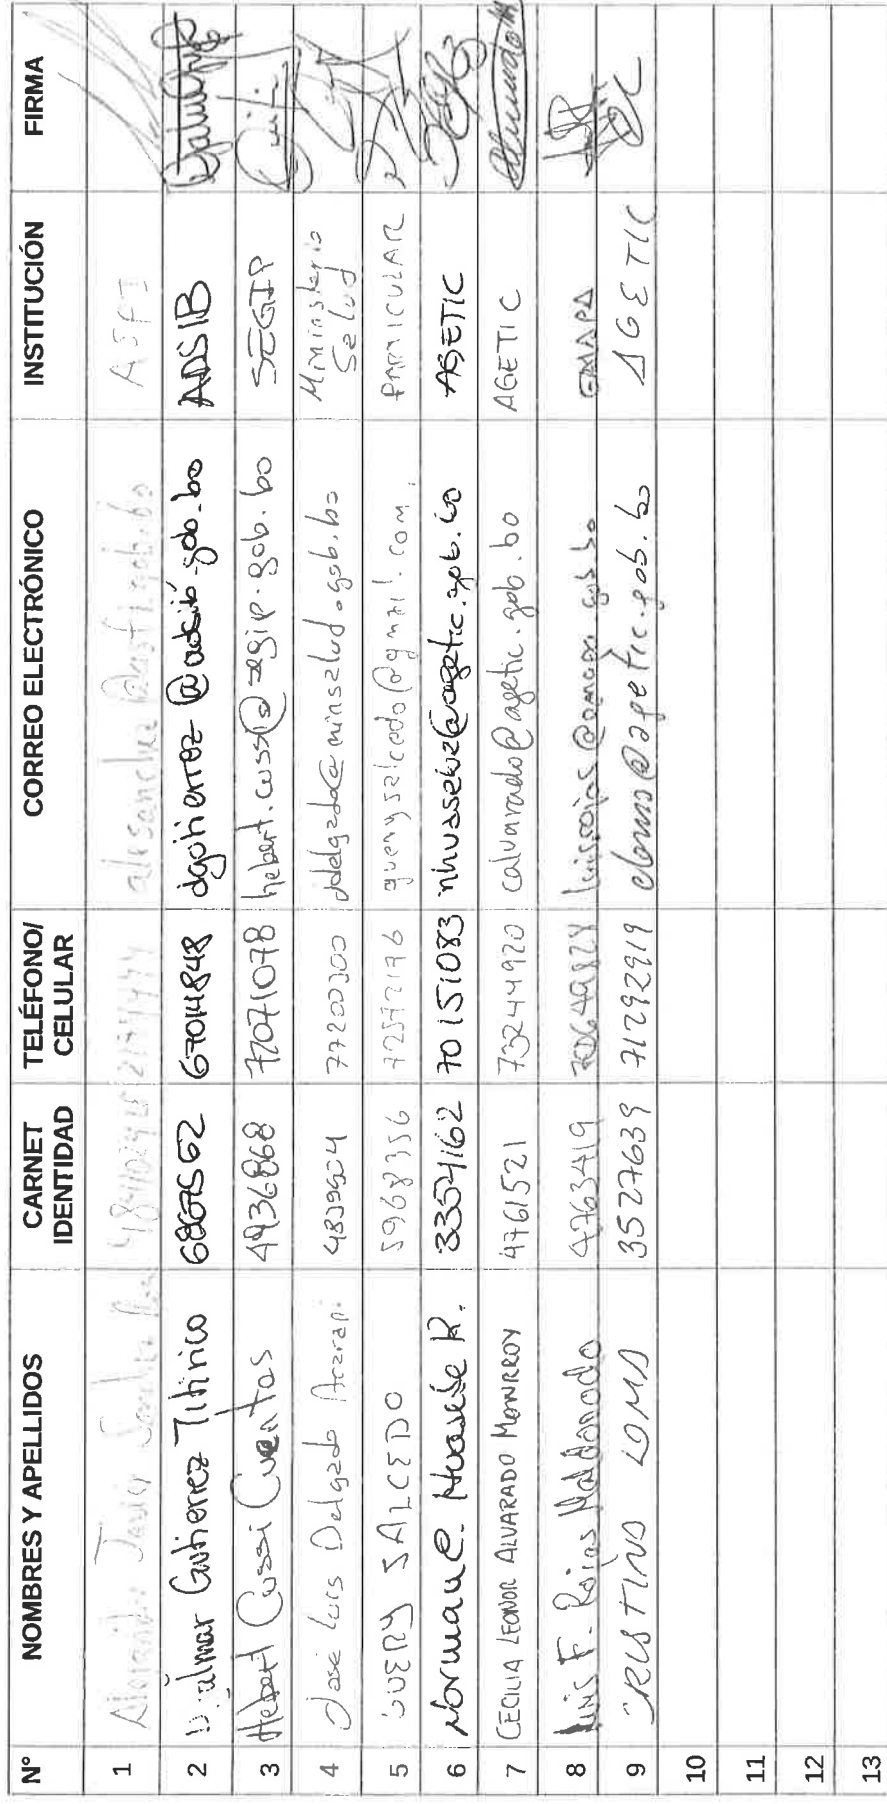 N° NOMBRES Y APELLIDOS CARNET IDENTIDAD TELÉFONO/ CELULAR CORREO ELECTRÓNICO INSTITUCIÓN FIRMA
1 Alejandro Javier Sanchez ASFI
2 Djalmar Gutierrez Titirico 67014848 dgutierrez@adsib.gob.bo ADSIB
3 Hebert Cussi Cuentas 4936868 72071078 hebert.cussi@segip.gob.bo SEGIP
4 Jose Luis Delgado 77200300 jdelgado@minsalud.gob.bo Mininsterio Salud
5 GUERY SALCEDO 5968356 72572176 guerysalcedo@gmail.com PARTICULAR
6 Norma C. 3354162 70151083 AGETIC
7 CECILIA LEONOR ALVARADO MONRROY 4761521 73244920 calvarado@agetic.gob.bo AGETIC
8 Luis F. Rojas Maldonado 4763419 EMAPA
9 CRISTINO LOMA 3527639 71292919 cloma@agetic.gob.bo AGETIC
10
11
12
13